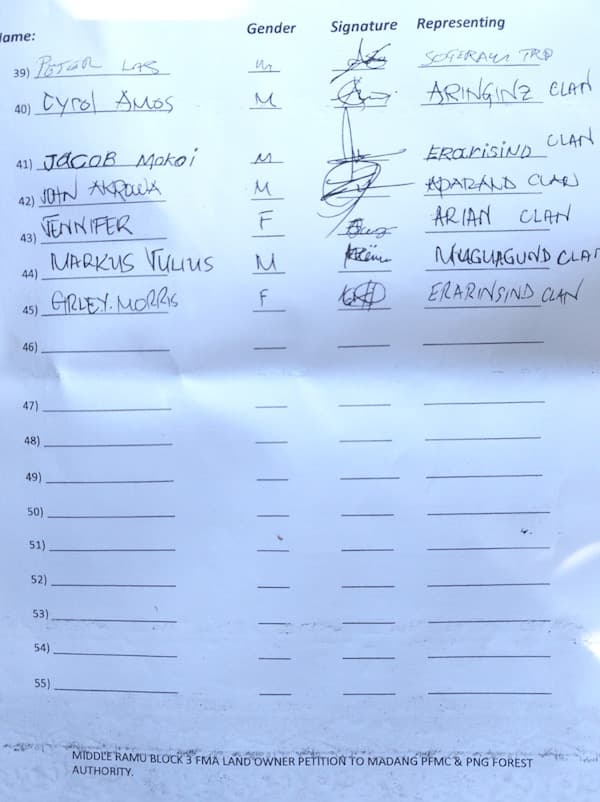 Name: Gender Signature Representing
39) PETER LAS M
40) Cyrol AMOS M ARINGINZ CLAN
41) JACOB Mokoi M ERarisiND CLAN
42) JOHN AKROWA M APARAND CLAN
43) JENNIFER F ARIAN CLAN
44) MARKUS JULIUS M MUGUAGUND CLAN
45) GIRLEY. MORRIS F ERARINSIND CLAN
46)
47)
48)
49)
50)
51)
52)
53)
54)
55)
MIDDLE RAMU BLOCK 3 FMA LAND OWNER PETITION TO MADANG PFMC & PNG FOREST
AUTHORITY.